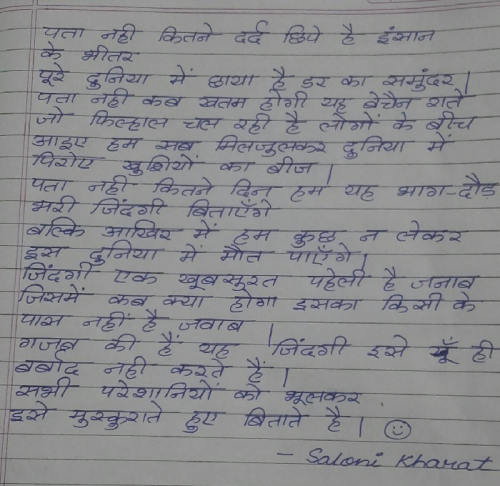 पता नही कितने दर्द छिपे है इंसान
के भीतर
पूरे दुनिया में छाया है डर का समुंदर |
पता नही कब खतम होगी यह बेचैन राते
जो फिल्हाल चल रही है लोगों के बीच
आइए हम सब मिलजुलकर दुनिया में
पिरोए खुशियों का बीज |
पता नही कितने दिन हम यह भाग-दौड़
भरी जिंदगी बिताएँगे
बल्कि आखिर में हम कुछ न लेकर
इस दुनिया में मौत पाएँगे |
जिंदगी एक खूबसूरत पहेली है जनाब
जिसमें कब क्या होगा इसका किसी के
पास नहीं है जवाब |
गजब की हैं यह जिंदगी इसे यूँ ही
बर्बाद नही करते हैं |
सभी परेशानियों को भूलकर
इसे मुस्कुराते हुए बिताते है | ☺
- Saloni Kharat